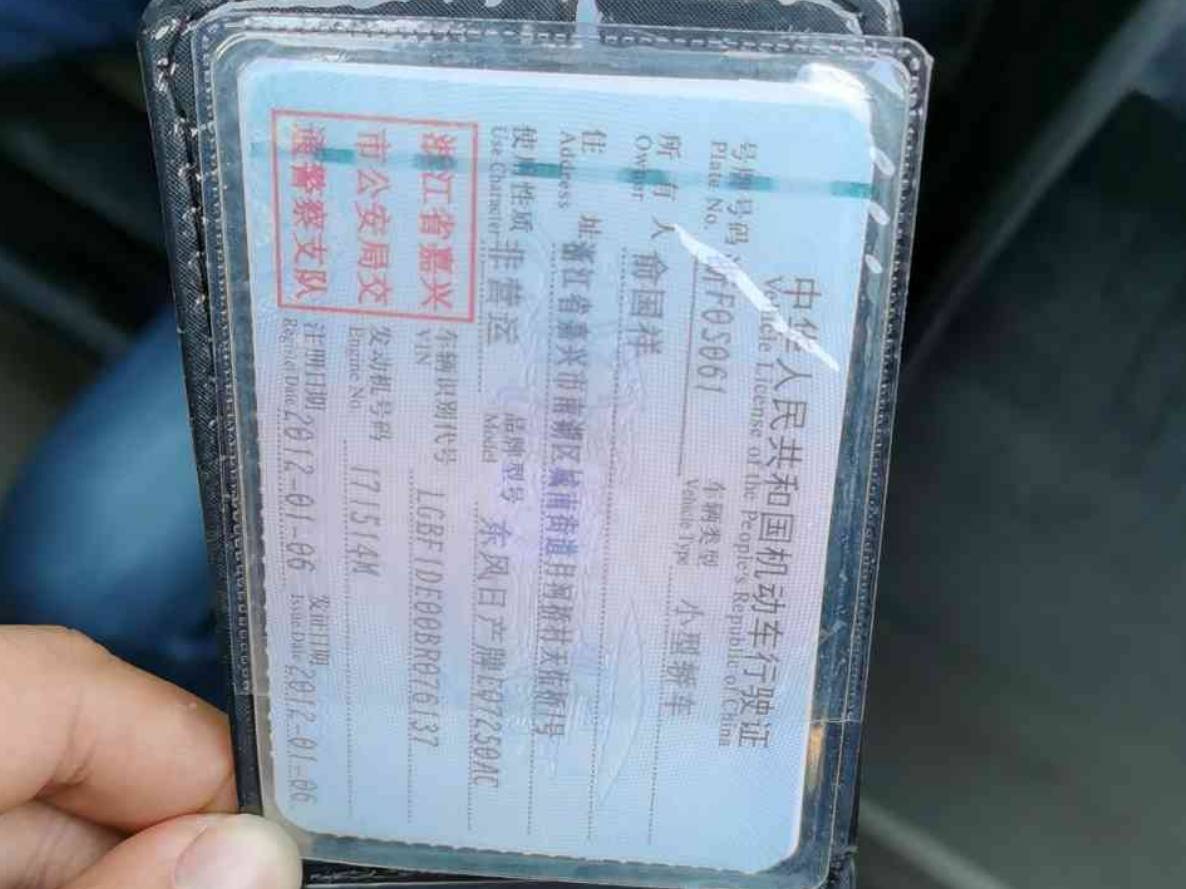 中华人民共和国机动车行驶证
Vehicle License of the People's Republic of China
号牌号码 F0S061 车辆类型 小型轿车
Plate No. Vehicle Type
所有人 俞国祥
Owner
住址 浙江省嘉兴市南湖区城南街道
Address
使用性质 非营运 品牌型号 东风日产牌
Use Character Model
浙江省嘉兴
市公安局交
通警察支队
车辆识别代号 LGBF1DE00BR076137
VIN
发动机号码 171514M
Engine No.
注册日期 2012-01-06 发证日期 2012-01-06
Register Date Issue Date